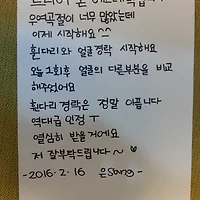 우여곡절이 너무 많았는데
이제 시작해요 ^^
휜다리와 얼굴경락 시작해요
오늘 1회후 얼굴의 다른부분을 비교
해주었어요
휜다리 경락은 정말 아픕니다
역대급 인정 ㅜ
열심히 받을거에요
저 잘부탁드립니다 ~ ♡
-2016. 2. 16 은Song-